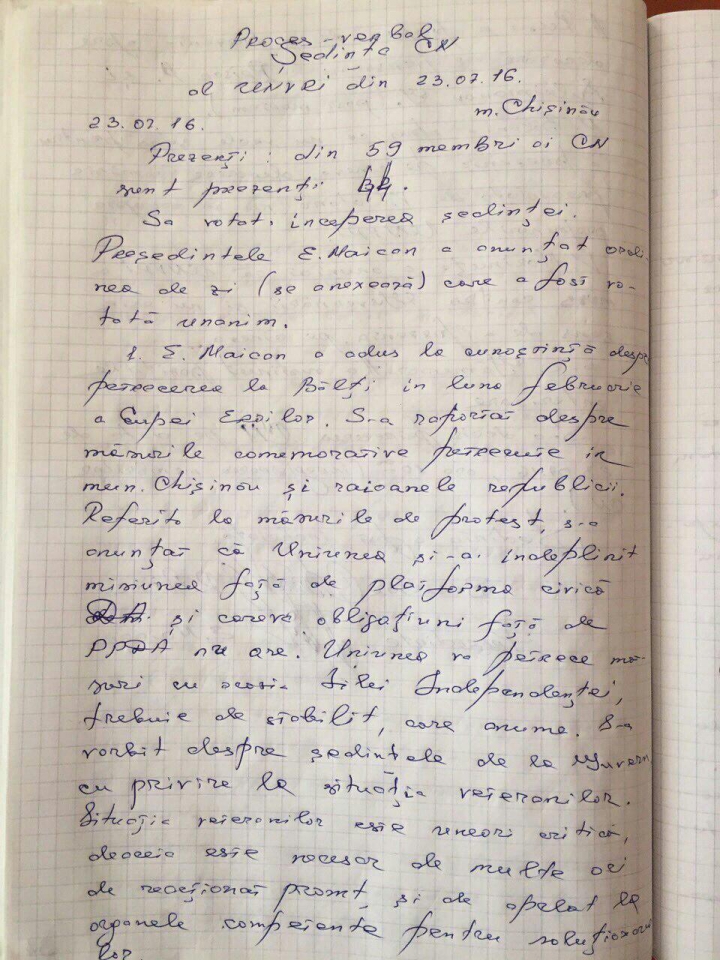 Proces-verbal
Ședința CN
al UNVRI din 23.07.16.
m. Chișinău
23.07.16.
Prezenți: din 59 membri ai CN
sunt prezenți 44.
Sa votat. începerea ședinței.
Președintele E. Maican a anunțat ordi-
nea de zi (se anexează) care a fost vo-
tată unanim.
1. E. Maican a adus la cunoștință despre
petrecerea la Bălți in luna februarie
a Cupei Eroilor. S-a raportat despre
măsurile comemorative petrecute in
mun. Chișinău și raioanele republicii.
Referito la măsurile de protest, s-a
anunțat că Uniunea și-a indeplinit
misiunea față de platforma civică
DA și careva obligațiuni față de
PPDA nu are. Uniunea va petrece mă-
suri cu ocazia Zilei Independenței,
trebuie de stabilit, care anume. S-a
vorbit despre ședintele de la Guvern
cu privire la situația veteranilor.
Situația veteranilor este uneori critică,
deaceia este necesar de multe ori
de reacționat promt, și de apelat la
organele competente pentru soluționarea
lor.